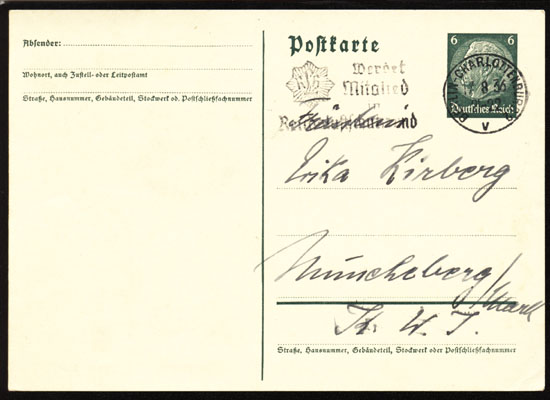 Absender:
Wohnort, auch Zustell- oder Leitpostamt
Straße, Hausnummer, Gebäudeteil, Stockwerk od. Postschließfachnummer
Postkarte
6 6
Deutsches Reich
BERLIN-CHARLOTTENBURG
8.36
V
Werdet
Mitglied
im
Fräulein
Erika Kirberg
Müncheberg/Mark
Straße, Hausnummer, Gebäudeteil, Stockwerk oder Postschließfachnummer